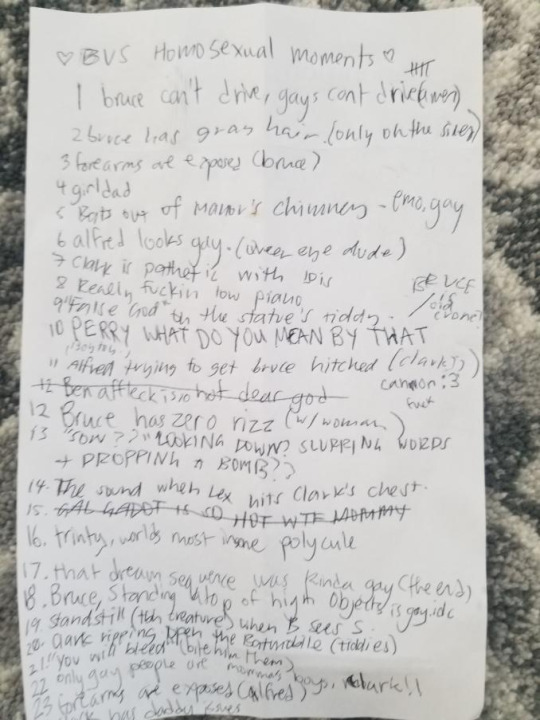 ♡ BVS Homosexual moments ♡
1 bruce can't drive, gays cont drive
2 bruce has gray hair (only on the sides)
3 forearms are exposed (bruce)
4 girldad
5 Bats out of manor's chimney - emo, gay
6 alfred looks gay. (eye dude)
7 Clark is pathetic with lois
8 Really fuckin low piano
9 "False God" on the statue's tiddy.
BRUCE
is
old
10 PERRY WHAT DO YOU MEAN BY THAT
11 Alfred trying to get bruce hitched (clark??)
cannon :3
fuck
12 Ben affleck is so hot dear god
12 Bruce has zero rizz (w/ woman)
13 "SON??" LOOKING DOWN? SLURRING WORDS
+ DROPPING A BOMB??
14. The sound when Lex hits Clark's chest.
15. GAL GADOT IS SO HOT WTF MOMMY
16. trinty, worlds most insane polycule
17. that dream sequence was kinda gay (the end)
18. Bruce, Standing atop of high objects is gay. idc
19 standstill (tbh creature) when B sees S.
20. Clark ripping open the Batmobile (tiddies)
21. "You will bleed" (bite him then)
22 only gay people are mommas boys,
23 forearms are exposed (alfred)
has daddy issues